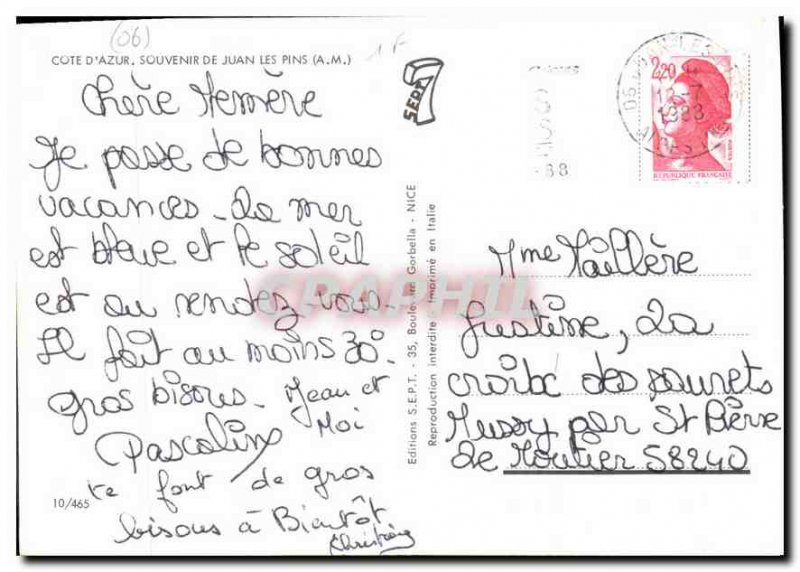 (06)
COTE D'AZUR. SOUVENIR DE JUAN LES PINS (A.M.)
1 F
Chère Mémère
Je passe de bonnes
vacances - La mer
est bleue et le soleil
est au rendez-vous.
Il fait au moins 30°
gros bisous - Jean et
Moi
Pascaline
te font de gros
bisous à Bientôt
Christiane
10/465
SEPT 7
Editions S.E.P.T. - 35, Boulevard Gorbella - NICE
Reproduction interdite - Imprimé en Italie
2,20
12-7
1988
REPUBLIQUE FRANÇAISE
Mme Taillère
Justine, La
croix des
Mussy par St Pierre
de Moutier 58240